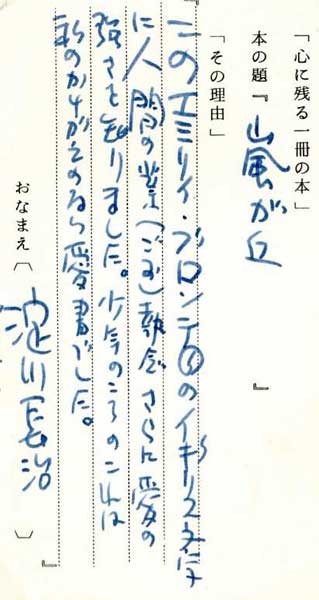 「心に残る一冊の本」
本の題『嵐が丘』
「その理由」
『このエミリイ・ブロンテ目のイギリス文学
に人間の業(ごう)執念さらに愛の
強さを知りました。少年のころのこれは
私のかけがえのない愛書でした。
おなまえ〔淀川長治〕』